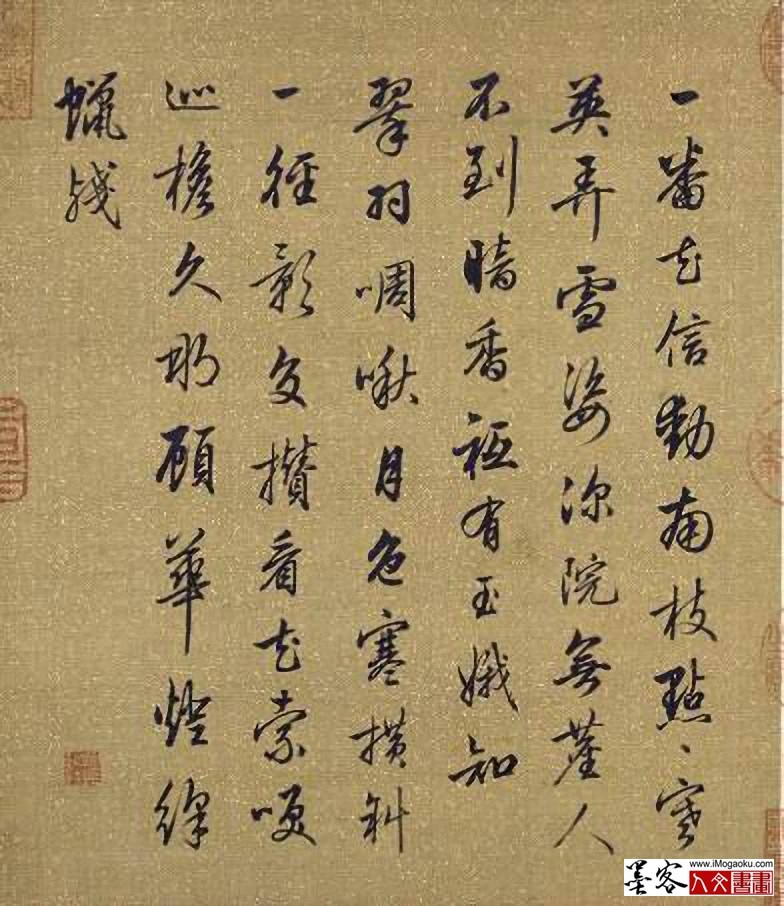 一番花信動南枝點〻寒
英弄雪姿深院無塵人
不到暗香祗有玉娥知
翠羽啁啾月色寒橫斜
一徑影交攢看花索咲
巡檐久那顧華燈絳
蠟殘
墨客
人文書畫
www.iMogaoku.com